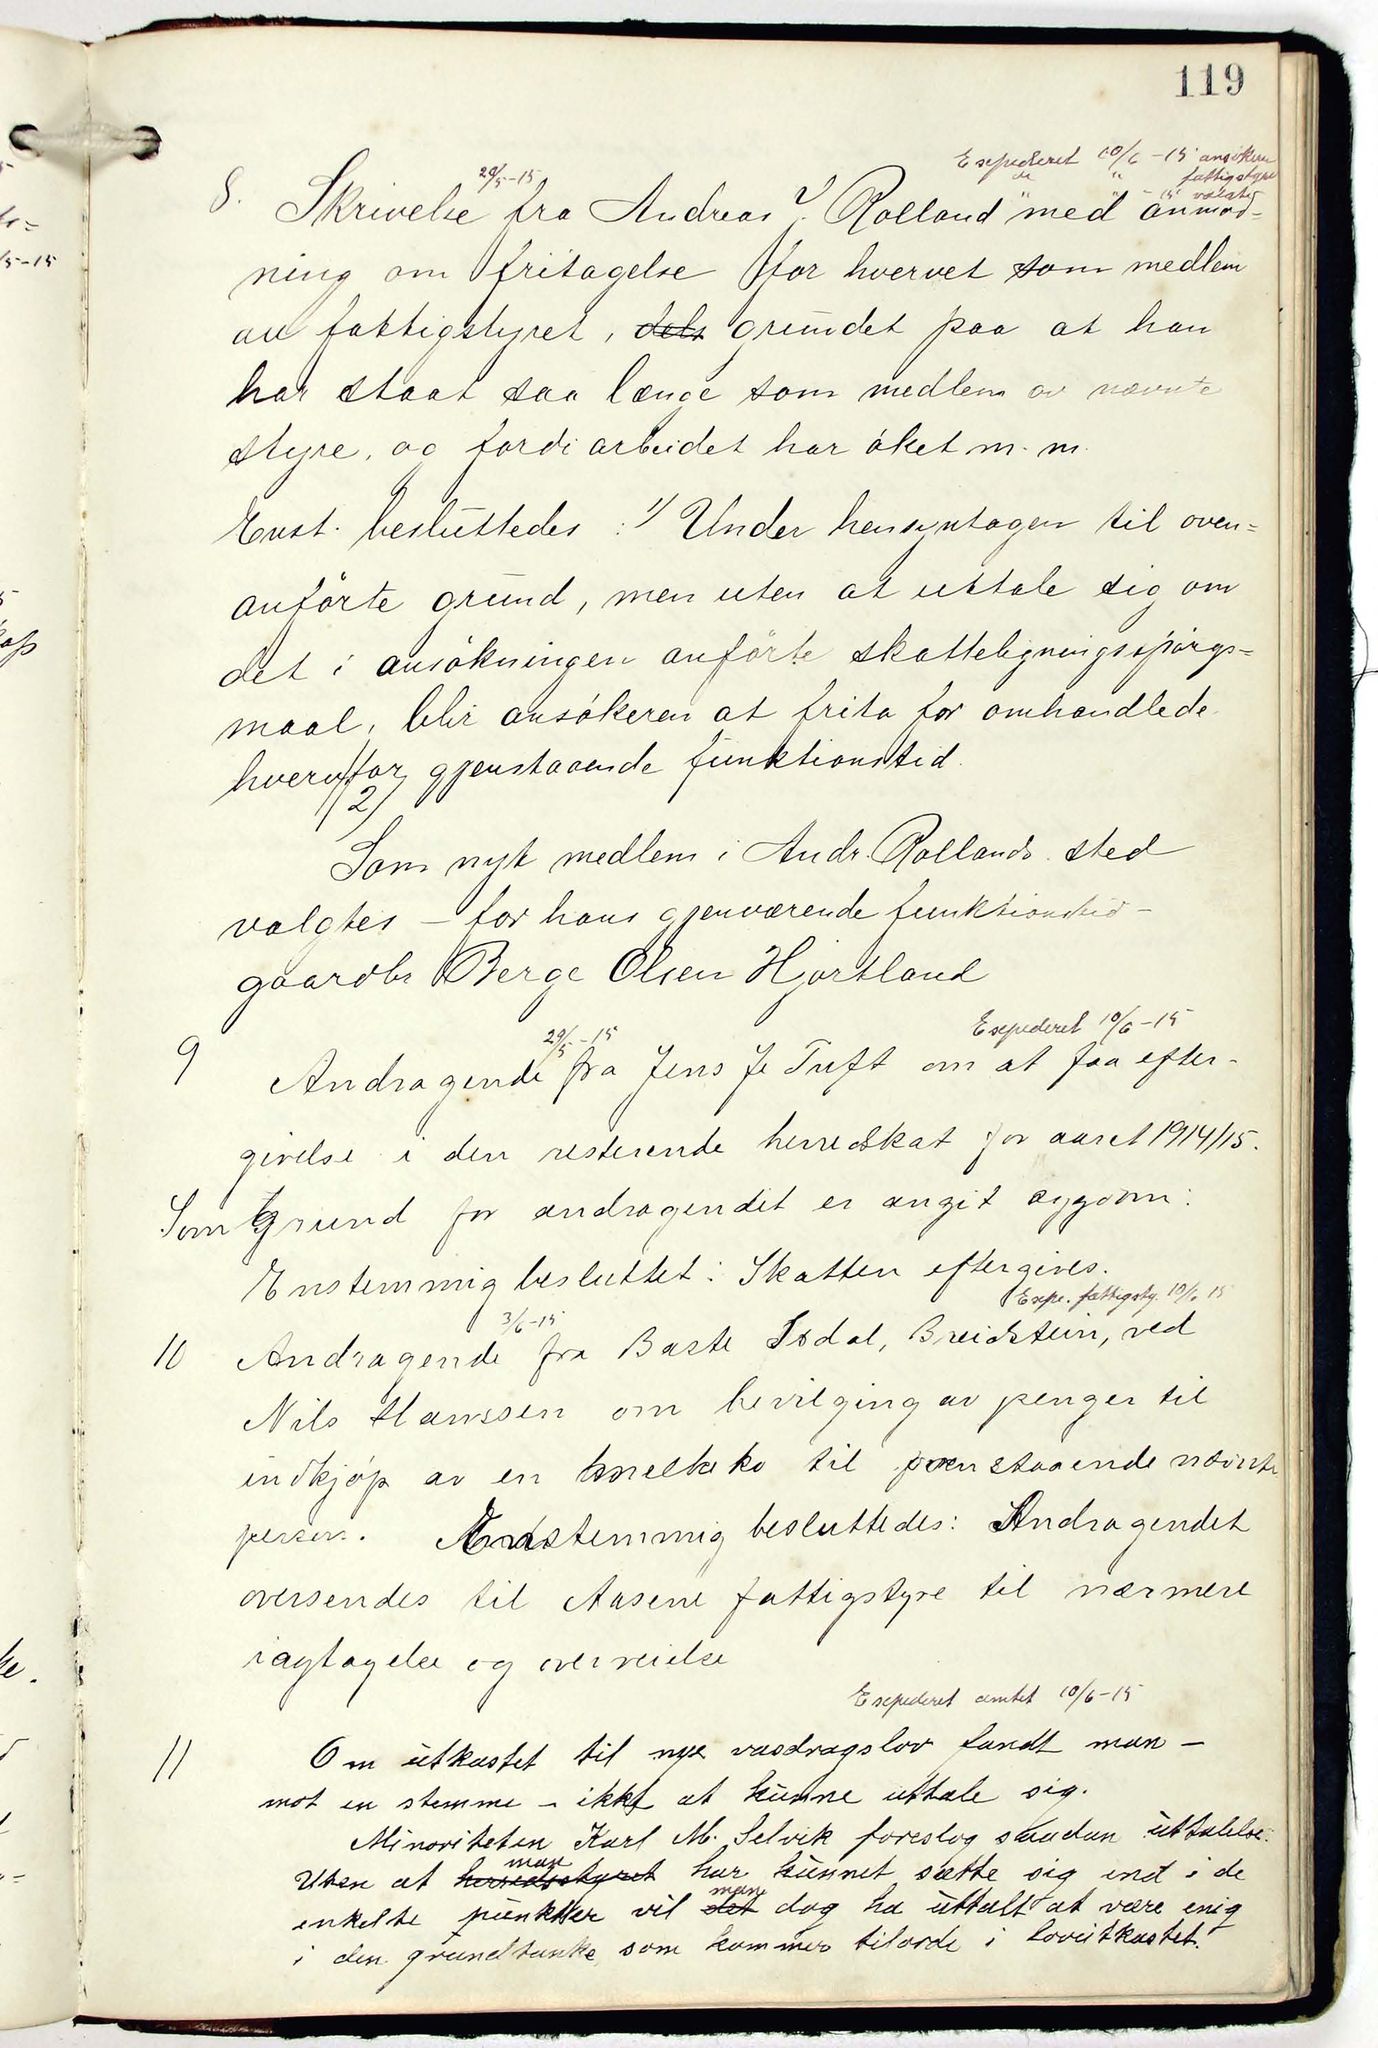 119
Expederet 10/6 – 15 ansökeren
" " fattigstyre
" " – 15 valgte
29/5 – 15
8. Skrivelse fra Andreas J. Rolland med anmod=
ning om fritagelse for hvervet som medlem
av fattigstyret, dels grundet paa at han
har staat saa længe som medlem av nævnte
styre, og fordi arbeidet har öket m. m.
Enst. besluttedes : 1/ Under hensyntagen til oven=
anförte grund, men uten at uttale sig om
det i ansökningen anförte skatteligningsspörgs=
maal, blir ansökeren at frita for omhandlede
hverv for gjenstaaende funktionstid.
2)
Som nyt medlem i Andr. Rollands sted
valgtes – for hans gjenværende funktionstid –
gaardbr Berge Olsen Hjortland
29/5 – 15 Expederet 10/6 – 15
9 Andragende fra Jens J. Tuft om at faa efter-
givelse i den resterende herredskat for aaret 1914/15.
Som grund for andragendet er angit sygdom:
Enstemmig besluttet: Skatten eftergives.
3/6 – 15 Expe. fattigsty. 10/6 15
10 Andragende fra Baste Isdal, Breidstein, ved
Nils Hanssen om bevilging av penger til
indkjöp av en melkeko til foranstaaende nævnte
person. Enstemmig besluttedes: Andragendet
oversendes til Aasene fattigstyre til nærmere
iagtagelse og overveielse
Expederet amtet 10/6 – 15
11 Om utkastet til nye vasdragslov fandt man –
mot en stemme – ikke at kunne uttale sig.
Minoriteten Karl M. Selvik foreslog saadan uttalelse:
man
Uten at herredsstyret har kunnet sætte sig ind i de
man
enkelte punkter vil det dog ha uttalt at være enig
i den grundtanke som kommer tilorde i lovutkastet.